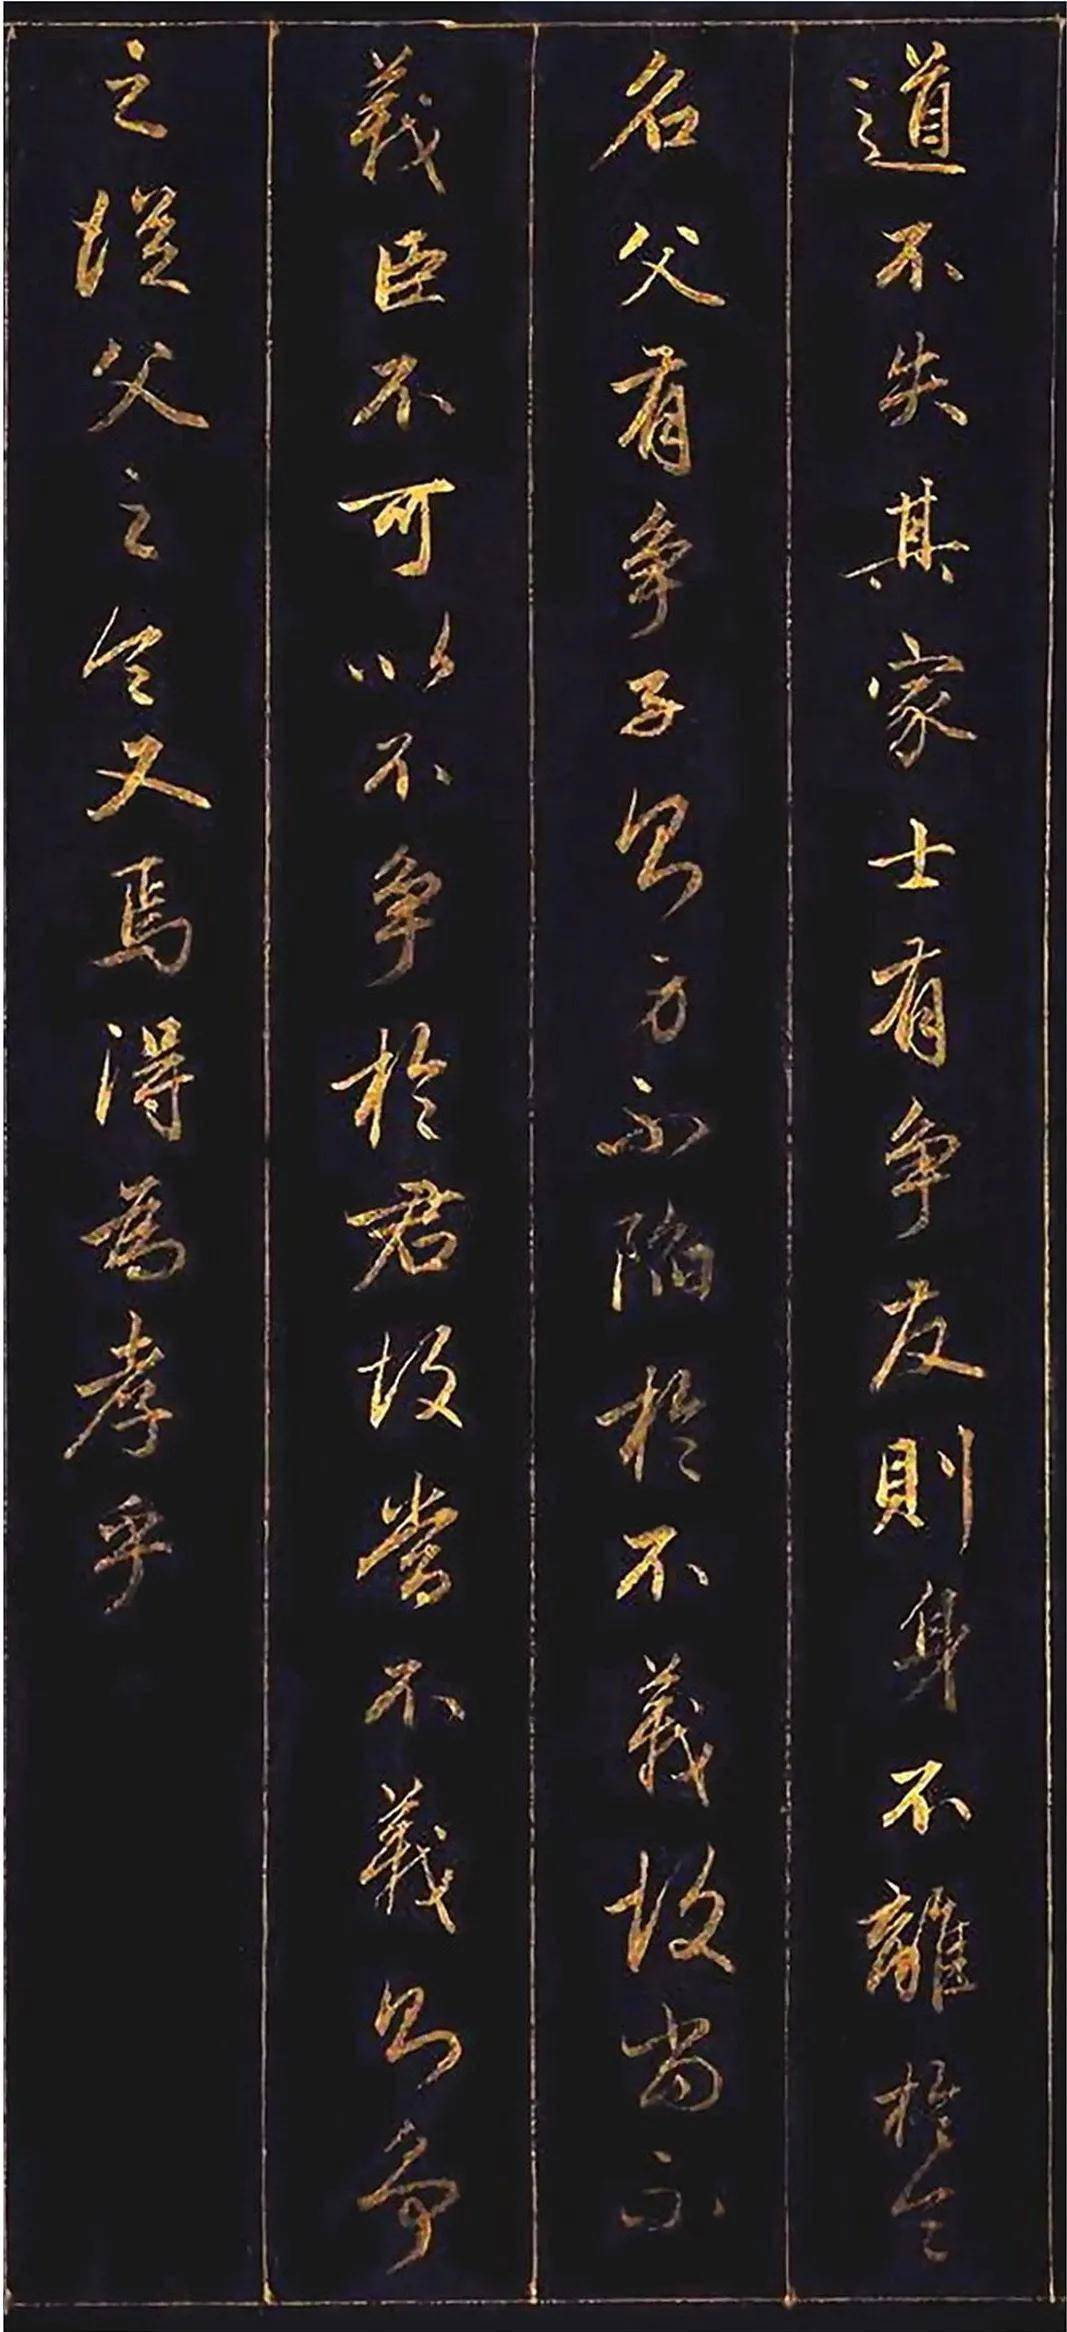 道不失其家士有争友則身不離於令
名父有争子則身不陷於不義故當不
義臣不可以不争於君故當不義則争
之從父之令又焉得為孝乎